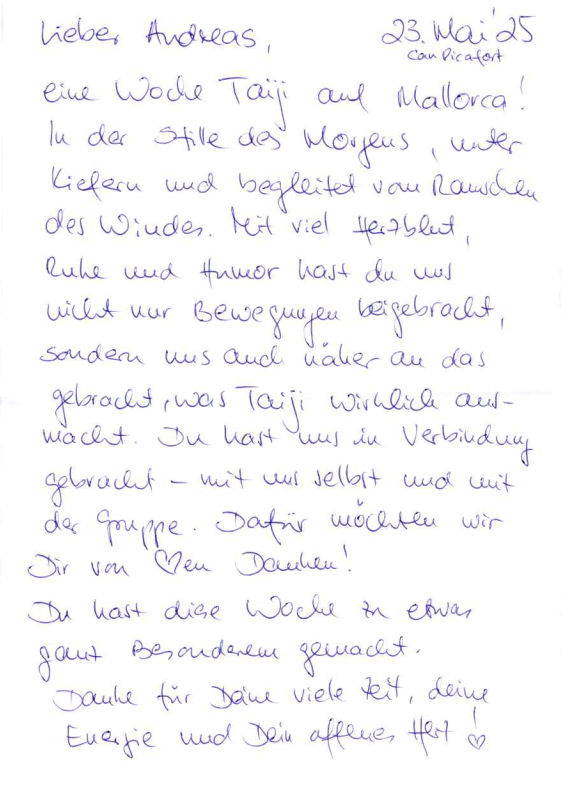 Lieber Andreas,
23. Mai '25
Can Picafort
eine Woche Taiji auf Mallorca!
In der Stille des Morgens, unter
Kiefern und begleitet vom Rauschen
des Windes. Mit viel Herzblut,
Ruhe und Humor hast du uns
nicht nur Bewegungen beigebracht,
sondern uns auch näher an das
gebracht, was Taiji wirklich aus-
macht. Du hast uns in Verbindung
gebracht – mit uns selbst und mit
der Gruppe. Dafür möchten wir
Dir von ♡en Danken!
Du hast diese Woche zu etwas
ganz Besonderem gemacht.
Danke für Deine viele Zeit, deine
Energie und Dein offenes Herz!♡